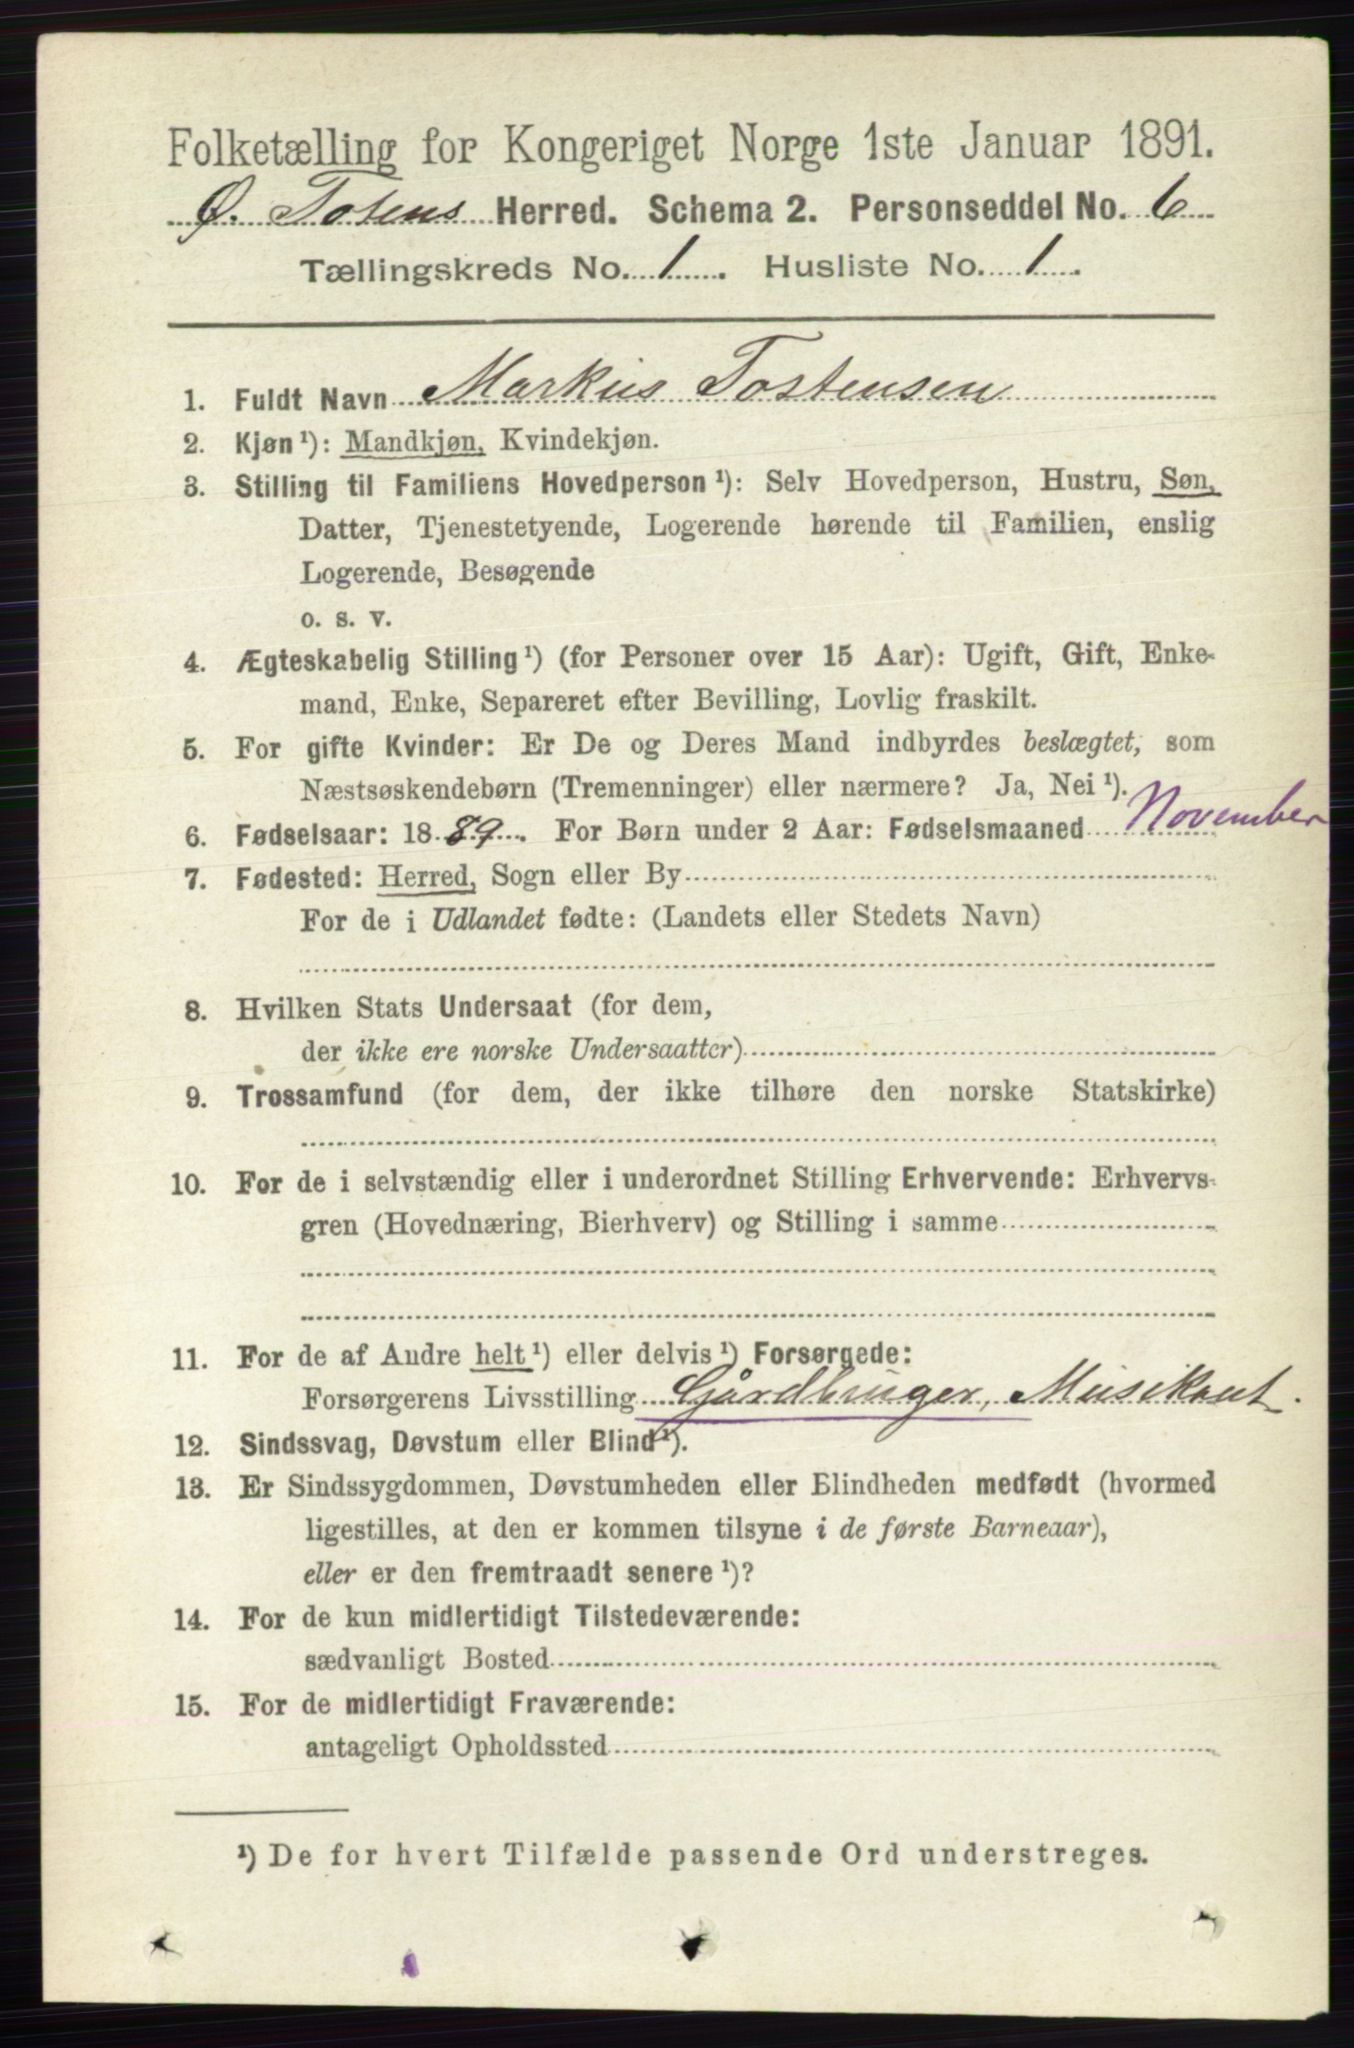 Folketælling for Kongeriget Norge 1ste Januar 1891.
Ø. Totens Herred. Schema 2. Personseddel No. 6
Tællingskreds No. 1. Husliste No. 1.
1. Fuldt Navn Markus Tostensen
2. Kjøn¹): Mandkjøn, Kvindekjøn.
3. Stilling til Familiens Hovedperson¹): Selv Hovedperson, Hustru, Søn,
Datter, Tjenestetyende, Logerende hørende til Familien, enslig
Logerende, Besøgende
o. s. v.
4. Ægteskabelig Stilling¹) (for Personer over 15 Aar): Ugift, Gift, Enke-
mand, Enke, Separeret efter Bevilling, Lovlig fraskilt.
5. For gifte Kvinder: Er De og Deres Mand indbyrdes beslægtet, som
Næstsøskendebørn (Tremenninger) eller nærmere? Ja, Nei¹).
6. Fødselsaar: 1889. For Børn under 2 Aar: Fødselsmaaned November
7. Fødested: Herred, Sogn eller By
For de i Udlandet fødte: (Landets eller Stedets Navn)
8. Hvilken Stats Undersaat (for dem,
der ikke ere norske Undersaatter)
9. Trossamfund (for dem, der ikke tilhøre den norske Statskirke)
10. For de i selvstændig eller i underordnet Stilling Erhvervende: Erhvervs-
gren (Hovednæring, Bierhverv) og Stilling i samme
11. For de af Andre helt¹) eller delvis¹) Forsørgede:
Forsørgerens Livsstilling Gårdbruger, Musikant.
12. Sindssvag, Døvstum eller Blind¹).
13. Er Sindssygdommen, Døvstumheden eller Blindheden medfødt (hvormed
ligestilles, at den er kommen tilsyne i de første Barneaar),
eller er den fremtraadt senere¹)?
14. For de kun midlertidigt Tilstedeværende:
sædvanligt Bosted
15. For de midlertidigt Fraværende:
antageligt Opholdssted
¹) De for hvert Tilfælde passende Ord understreges.